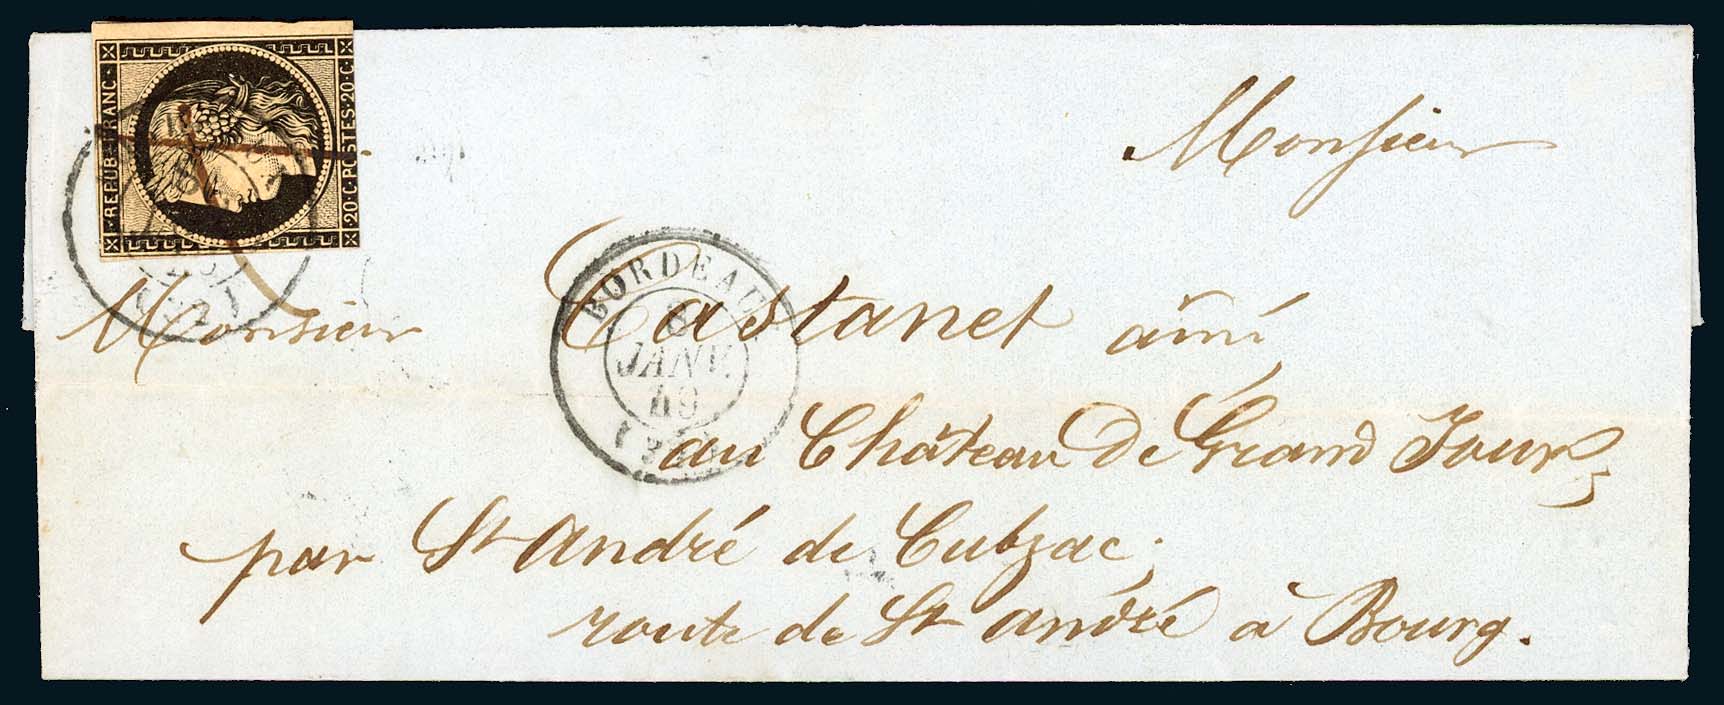 REPUB·FRANC·
20·C·POSTES·20·C·
Monsieur
BORDEAUX
8
JANV.
49
Monsieur Castanet ainé
au Château de Grand Jour,
par St André de Cubzac.
route de St André à Bourg.